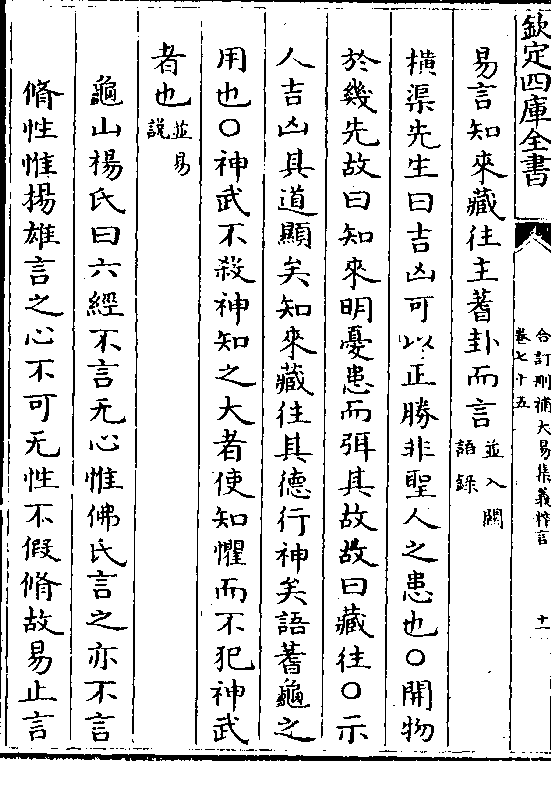 欽定四庫全書
合訂刪補大易集義粹言
卷七十五
十一
易言知來藏往主蓍卦而言並入關
語錄
橫渠先生曰吉凶可以正勝非聖人之患也○開物
於幾先故曰知來明憂患而弭其故故曰藏往○示
人吉凶其道顯矣知來藏往其德行神矣語蓍龜之
用也○神武不殺神知之大者使知懼而不犯神武
者也並易
說
龜山楊氏曰六經不言无心惟佛氏言之亦不言
脩性惟揚雄言之心不可无性不假脩故易止言